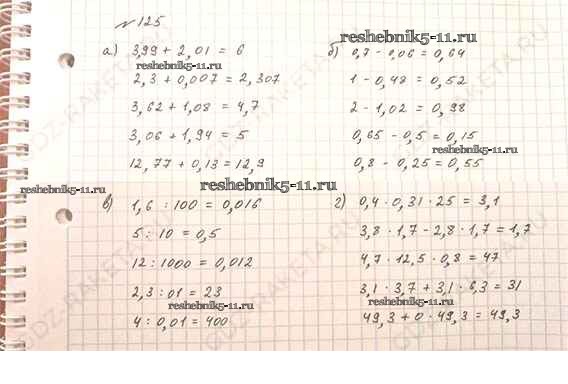 №125
reshebnik5-11.ru
а) 3,99 + 2,01 = 6
reshebnik5-11.ru
2,3 + 0,007 = 2,307
3,62 + 1,08 = 4,7
3,06 + 1,94 = 5
12,77 + 0,13 = 12,9
б) 0,7 - 0,06 = 0,64
1 - 0,48 = 0,52
2 - 1,02 = 0,98
0,65 - 0,5 = 0,15
reshebnik5-11.ru
0,8 - 0,25 = 0,55
reshebnik5-11.ru
reshebnik5-11.ru
в) 1,6 : 100 = 0,016
5 : 10 = 0,5
12 : 1000 = 0,012
2,3 : 01 = 23
reshebnik5-11.ru
4 : 0,01 = 400
г) 0,4 · 0,31 · 25 = 3,1
3,8 · 1,7 - 2,8 · 1,7 = 1,7
4,7 · 12,5 · 0,8 = 47
3,1 · 3,7 + 3,1 · 6,3 = 31
reshebnik5-11.ru
49,3 + 0 · 49,3 = 49,3
GDZ-RAKETA.RU
GDZ-RAKETA.RU
GDZ-RAKETA.RU
GDZ-RAKETA.RU